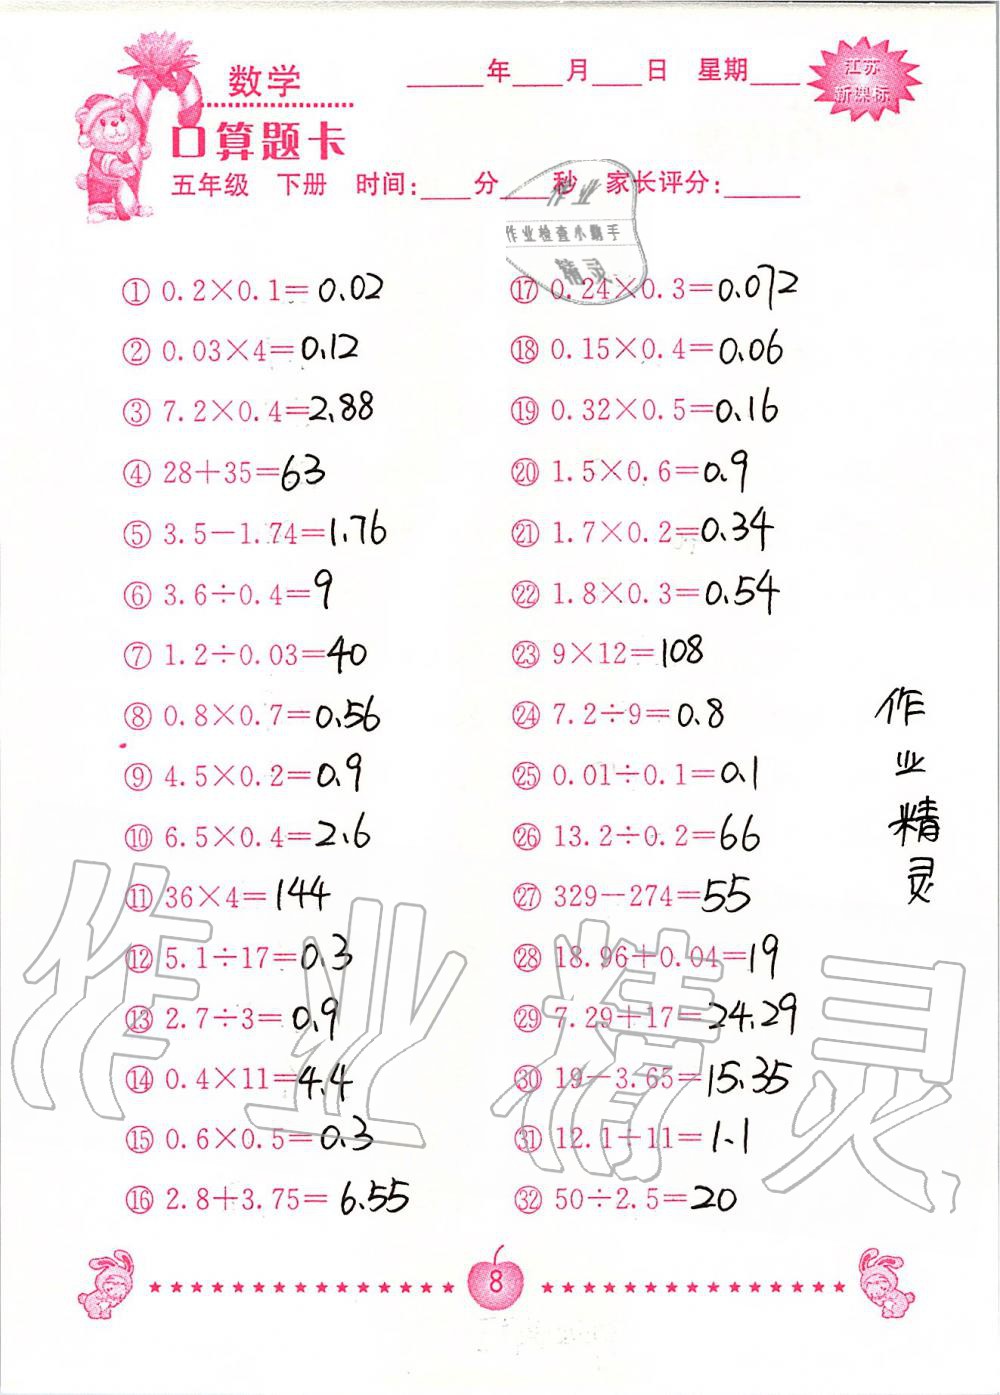 数学
____年____月____日 星期____
江苏
新课标
口算题卡
五年级 下册 时间:____分____秒 家长评分:____
作业
作业检查小助手
精灵
① 0.2×0.1=0.02
② 0.03×4=0.12
③ 7.2×0.4=2.88
④ 28+35=63
⑤ 3.5-1.74=1.76
⑥ 3.6÷0.4=9
⑦ 1.2÷0.03=40
⑧ 0.8×0.7=0.56
⑨ 4.5×0.2=0.9
⑩ 6.5×0.4=2.6
⑪ 36×4=144
⑫ 5.1÷17=0.3
⑬ 2.7÷3=0.9
⑭ 0.4×11=4.4
⑮ 0.6×0.5=0.3
⑯ 2.8+3.75=6.55
⑰ 0.24×0.3=0.072
⑱ 0.15×0.4=0.06
⑲ 0.32×0.5=0.16
⑳ 1.5×0.6=0.9
㉑ 1.7×0.2=0.34
㉒ 1.8×0.3=0.54
㉓ 9×12=108
㉔ 7.2÷9=0.8
㉕ 0.01÷0.1=0.1
㉖ 13.2÷0.2=66
㉗ 329-274=55
㉘ 18.96+0.04=19
㉙ 7.29+17=24.29
㉚ 19-3.65=15.35
㉛ 12.1÷11=1.1
㉜ 50÷2.5=20
作业精灵
作业精灵
8